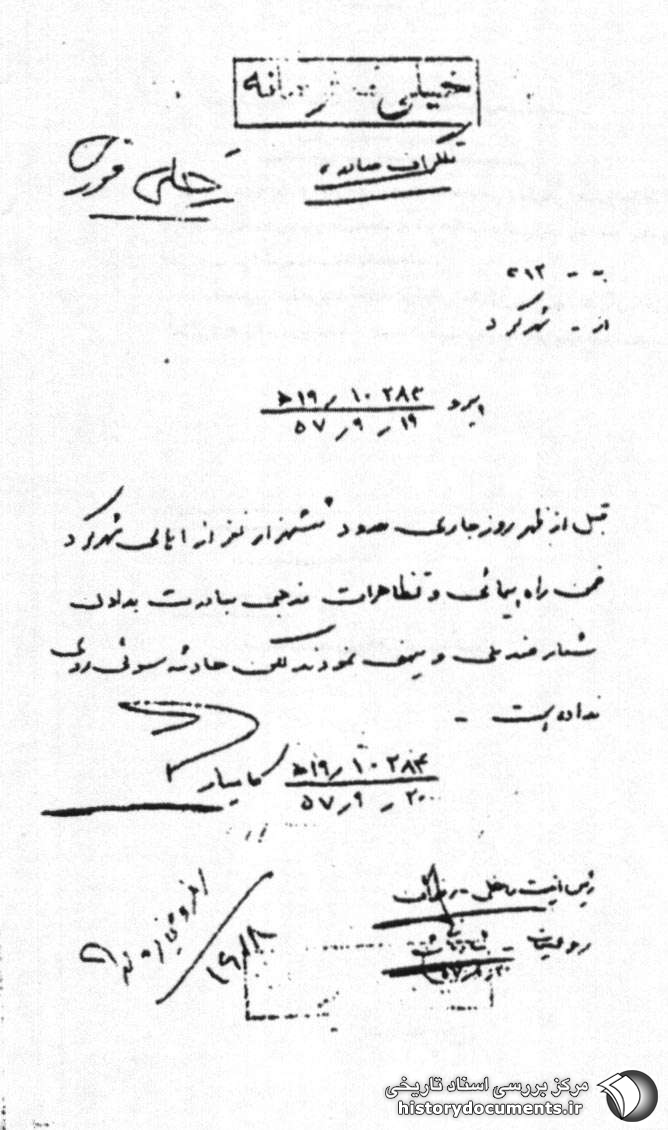 خیلی محرمانه
تلگراف صادره
خیلی فوری
به - ۳۱۲
از - شهرکرد
پیرو ۱۰۲۸۳ / ۱۹ ه‍
۱۹ / ۹ / ۵۷
قبل از ظهر روز جاری حدود ششهزار نفر از اهالی شهرکرد
ضمن راه پیمائی و تظاهرات مذهبی مبادرت بدادن
شعار ضد ملی و میهنی نمودند لکن حادثه سوئی روی
نداده است -
۱۰۲۸۴ / ۱۹ ه‍ کامیار
۲۰ / ۹ / ۵۷
رئیس امنیت داخلی
رهبر عملیات
مرکز بررسی اسناد تاریخی
historydocuments.ir